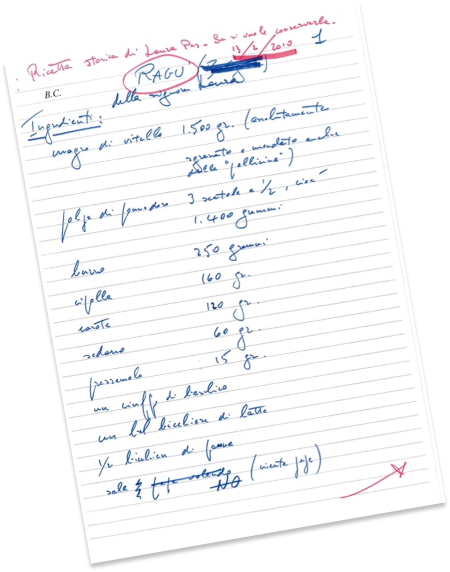 Ricetta storica di Laura Pas. Se si vuole conservarla.
13/2/2010
1
B.C.
RAGÙ
della signora Laura
Ingredienti:
magro di vitello 1.500 gr. (assolutamente
sgrassato e mondato anche
dalle "pellicine")
polpa di pomodoro 3 scatole e 1/2, cioè
1.400 grammi
burro 250 grammi
cipolla 160 gr.
carote 120 gr.
sedano 60 gr.
prezzemolo 15 gr.
un ciuffo di basilico
un bel bicchiere di latte
1/2 bicchiere di panna
sale e pepe volendo NO (niente pepe)